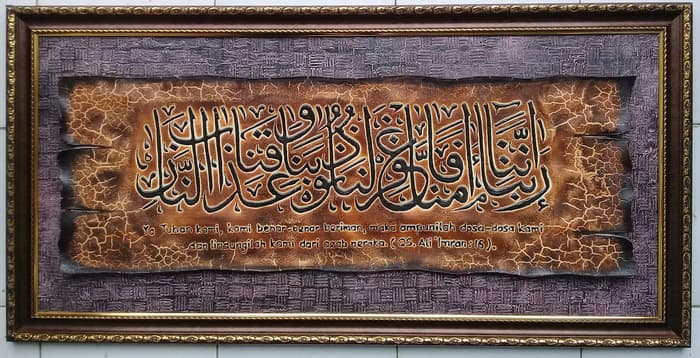 ربنا إننا آمنا فاغفر لنا ذنوبنا وقنا عذاب النار
Ya Tuhan kami, kami benar-benar beriman, maka ampunilah dosa-dosa kami
dan lindungilah kami dari azab neraka. ( QS. Ali 'Imran : 16 ).